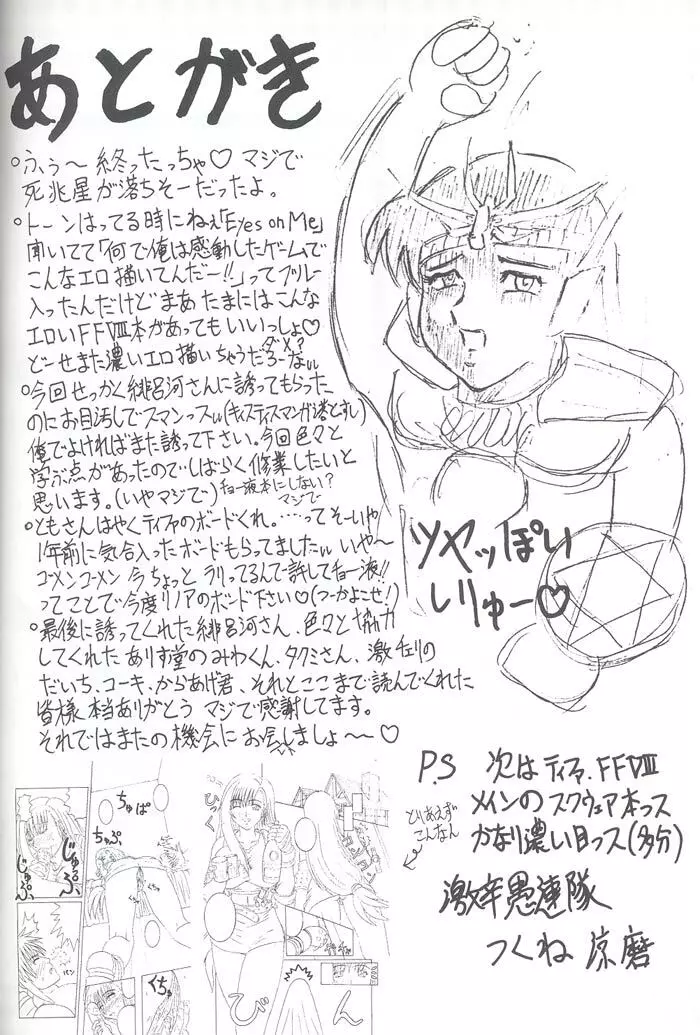 あとがき
°ふぅ〜終ったっちゃ♡ マジで
死兆星が落ちそーだったよ。
°トーンはってる時にねぇ「Eyes on Me」
聞いてて「何で俺は感動したゲームで
こんなエロ描いてんだー!!」ってブルー
入ったんだけどまあたまにはこんな
エロいFFⅧ本があってもいいっしょ♡
ダメ?
どーせまた濃いエロ描いちゃうだろーなぃぃ
°今回せっかく緋呂河さんに誘ってもらった
のにお目汚しでスマンっスぃぃ(キスティスマンが落とすし)
俺でよければまた誘って下さい。今回色々と
学ぶ点があったのでしばらく修業したいと
思います。(いやマジで)
チョー液本にしない?
マジで
°ともさんはやくティファのボードくれ。……ってそーいや
1年前に気合入ったボードもらってましたぃぃ いや〜
ゴメンゴメン 今ちょっとラリってるんで許してチョー液!!
ってことで今度リノアのボード下さい♡(つーかよこせ!)
°最後に誘ってくれた緋呂河さん、色々と協力
してくれたありす堂のみわくん、タクミさん、激チェリの
だいち、コーキ、からあげ君、それとここまで読んでくれた
皆様本当ありがとう マジで感謝してます。
それではまたの機会にお会いしましょ〜♡
ツヤッぽい
しりゅー♡
P.S 次はティファ、FFⅧ
メインのスクウェア本っス
かなり濃い目っス(多分)
とりあえず
こんなん
激辛愚連隊
つくね 涼磨
じゅるっ
じゅぷ、
ちゅぱ
ちゅぷ、
ひっく
パン
くちゅ
び
ん